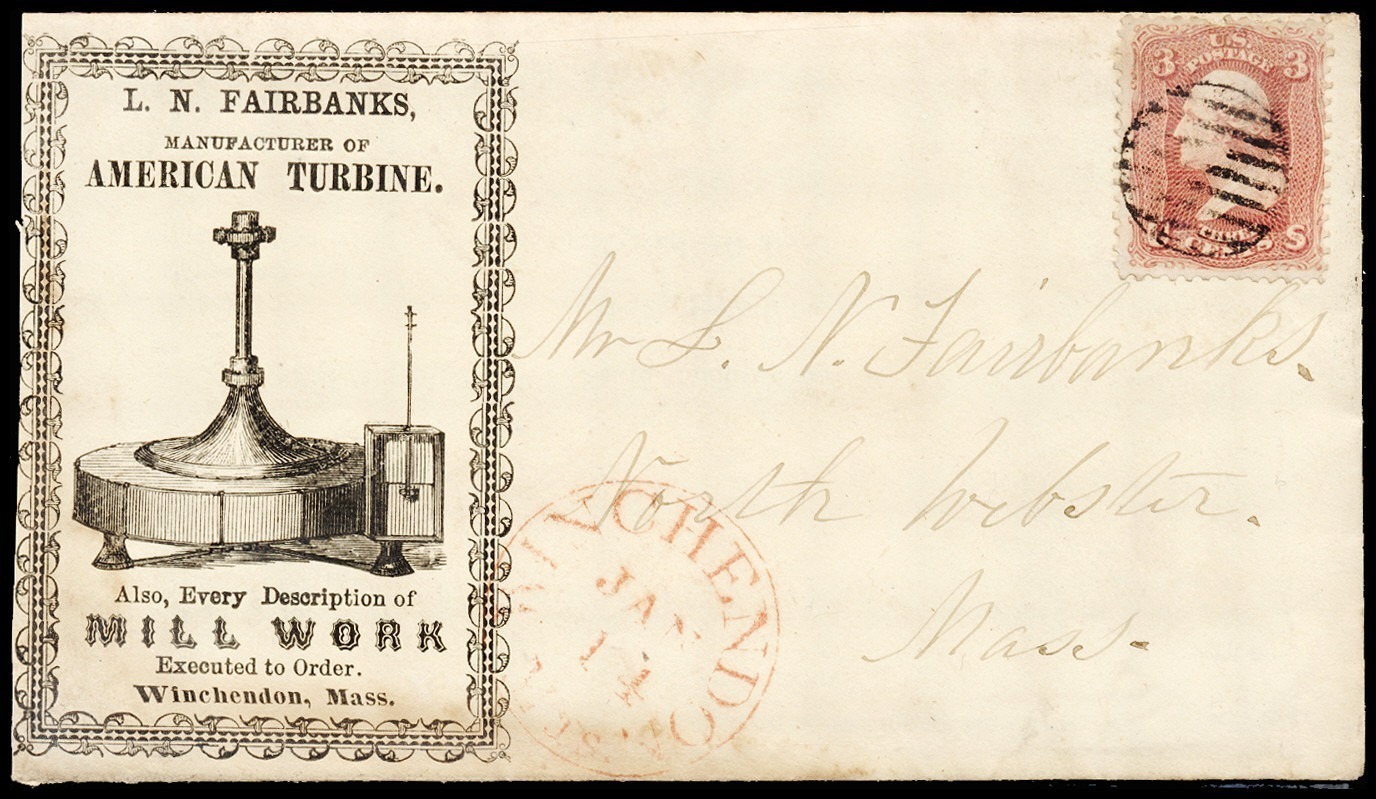 L. N. FAIRBANKS,
MANUFACTURER OF
AMERICAN TURBINE.
Also, Every Description of
MILL WORK
Executed to Order.
Winchendon, Mass.
3 U.S. 3
POSTAGE
CENTS
Mr L. N. Fairbanks.
North Webster.
Mass.
WINCHENDON
JAN